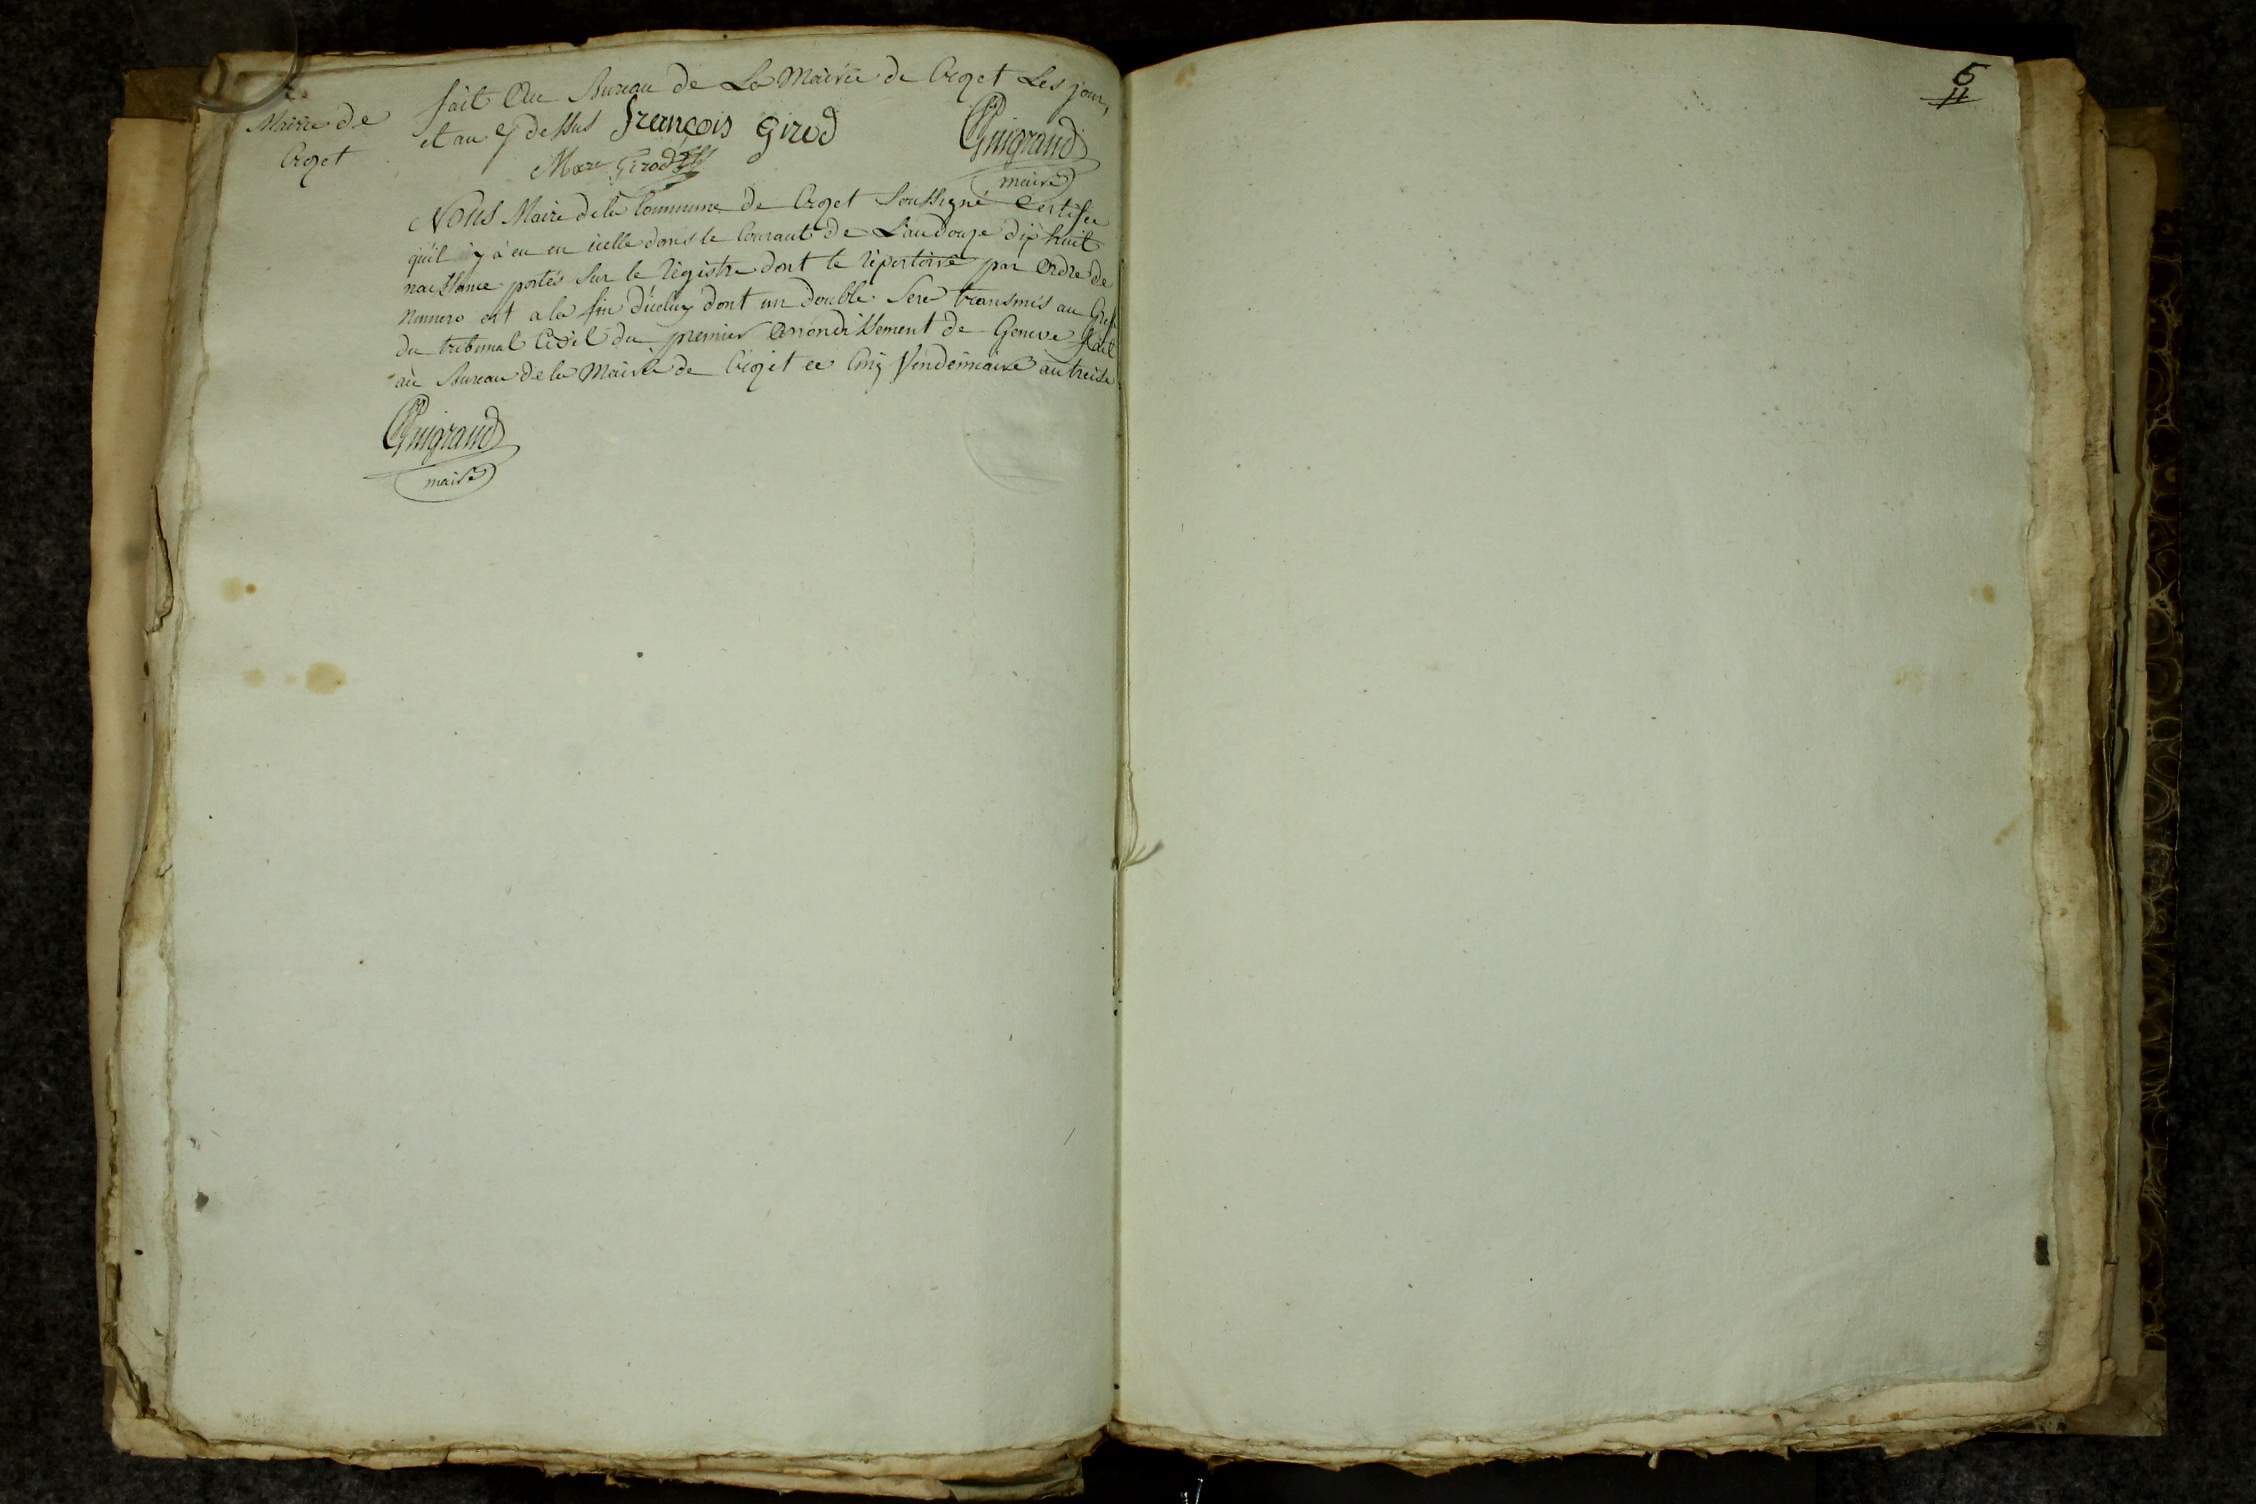 Mairie de
Crozet
fait Au Bureau de La Mairie de Crozet Les jour,
et an cy dessus françois Girod
Marc Girod
Guigraud
maire
Nous Maire dela Commune de Crozet Soussigné Certifie
qu'il y à eu en icelle dans le Courant de L'an douze dix huit
naissance portés Sur le régistre dont le répertoire par Ordre de
Numero est a la fin d'iceluy dont un double Sera transmis au
du tribunal Civil du premier Arrondissement de Geneve fait
au Bureau dela Mairie de Crozet ce Cinq Vendemiaire an treise
Guigraud
maire
5